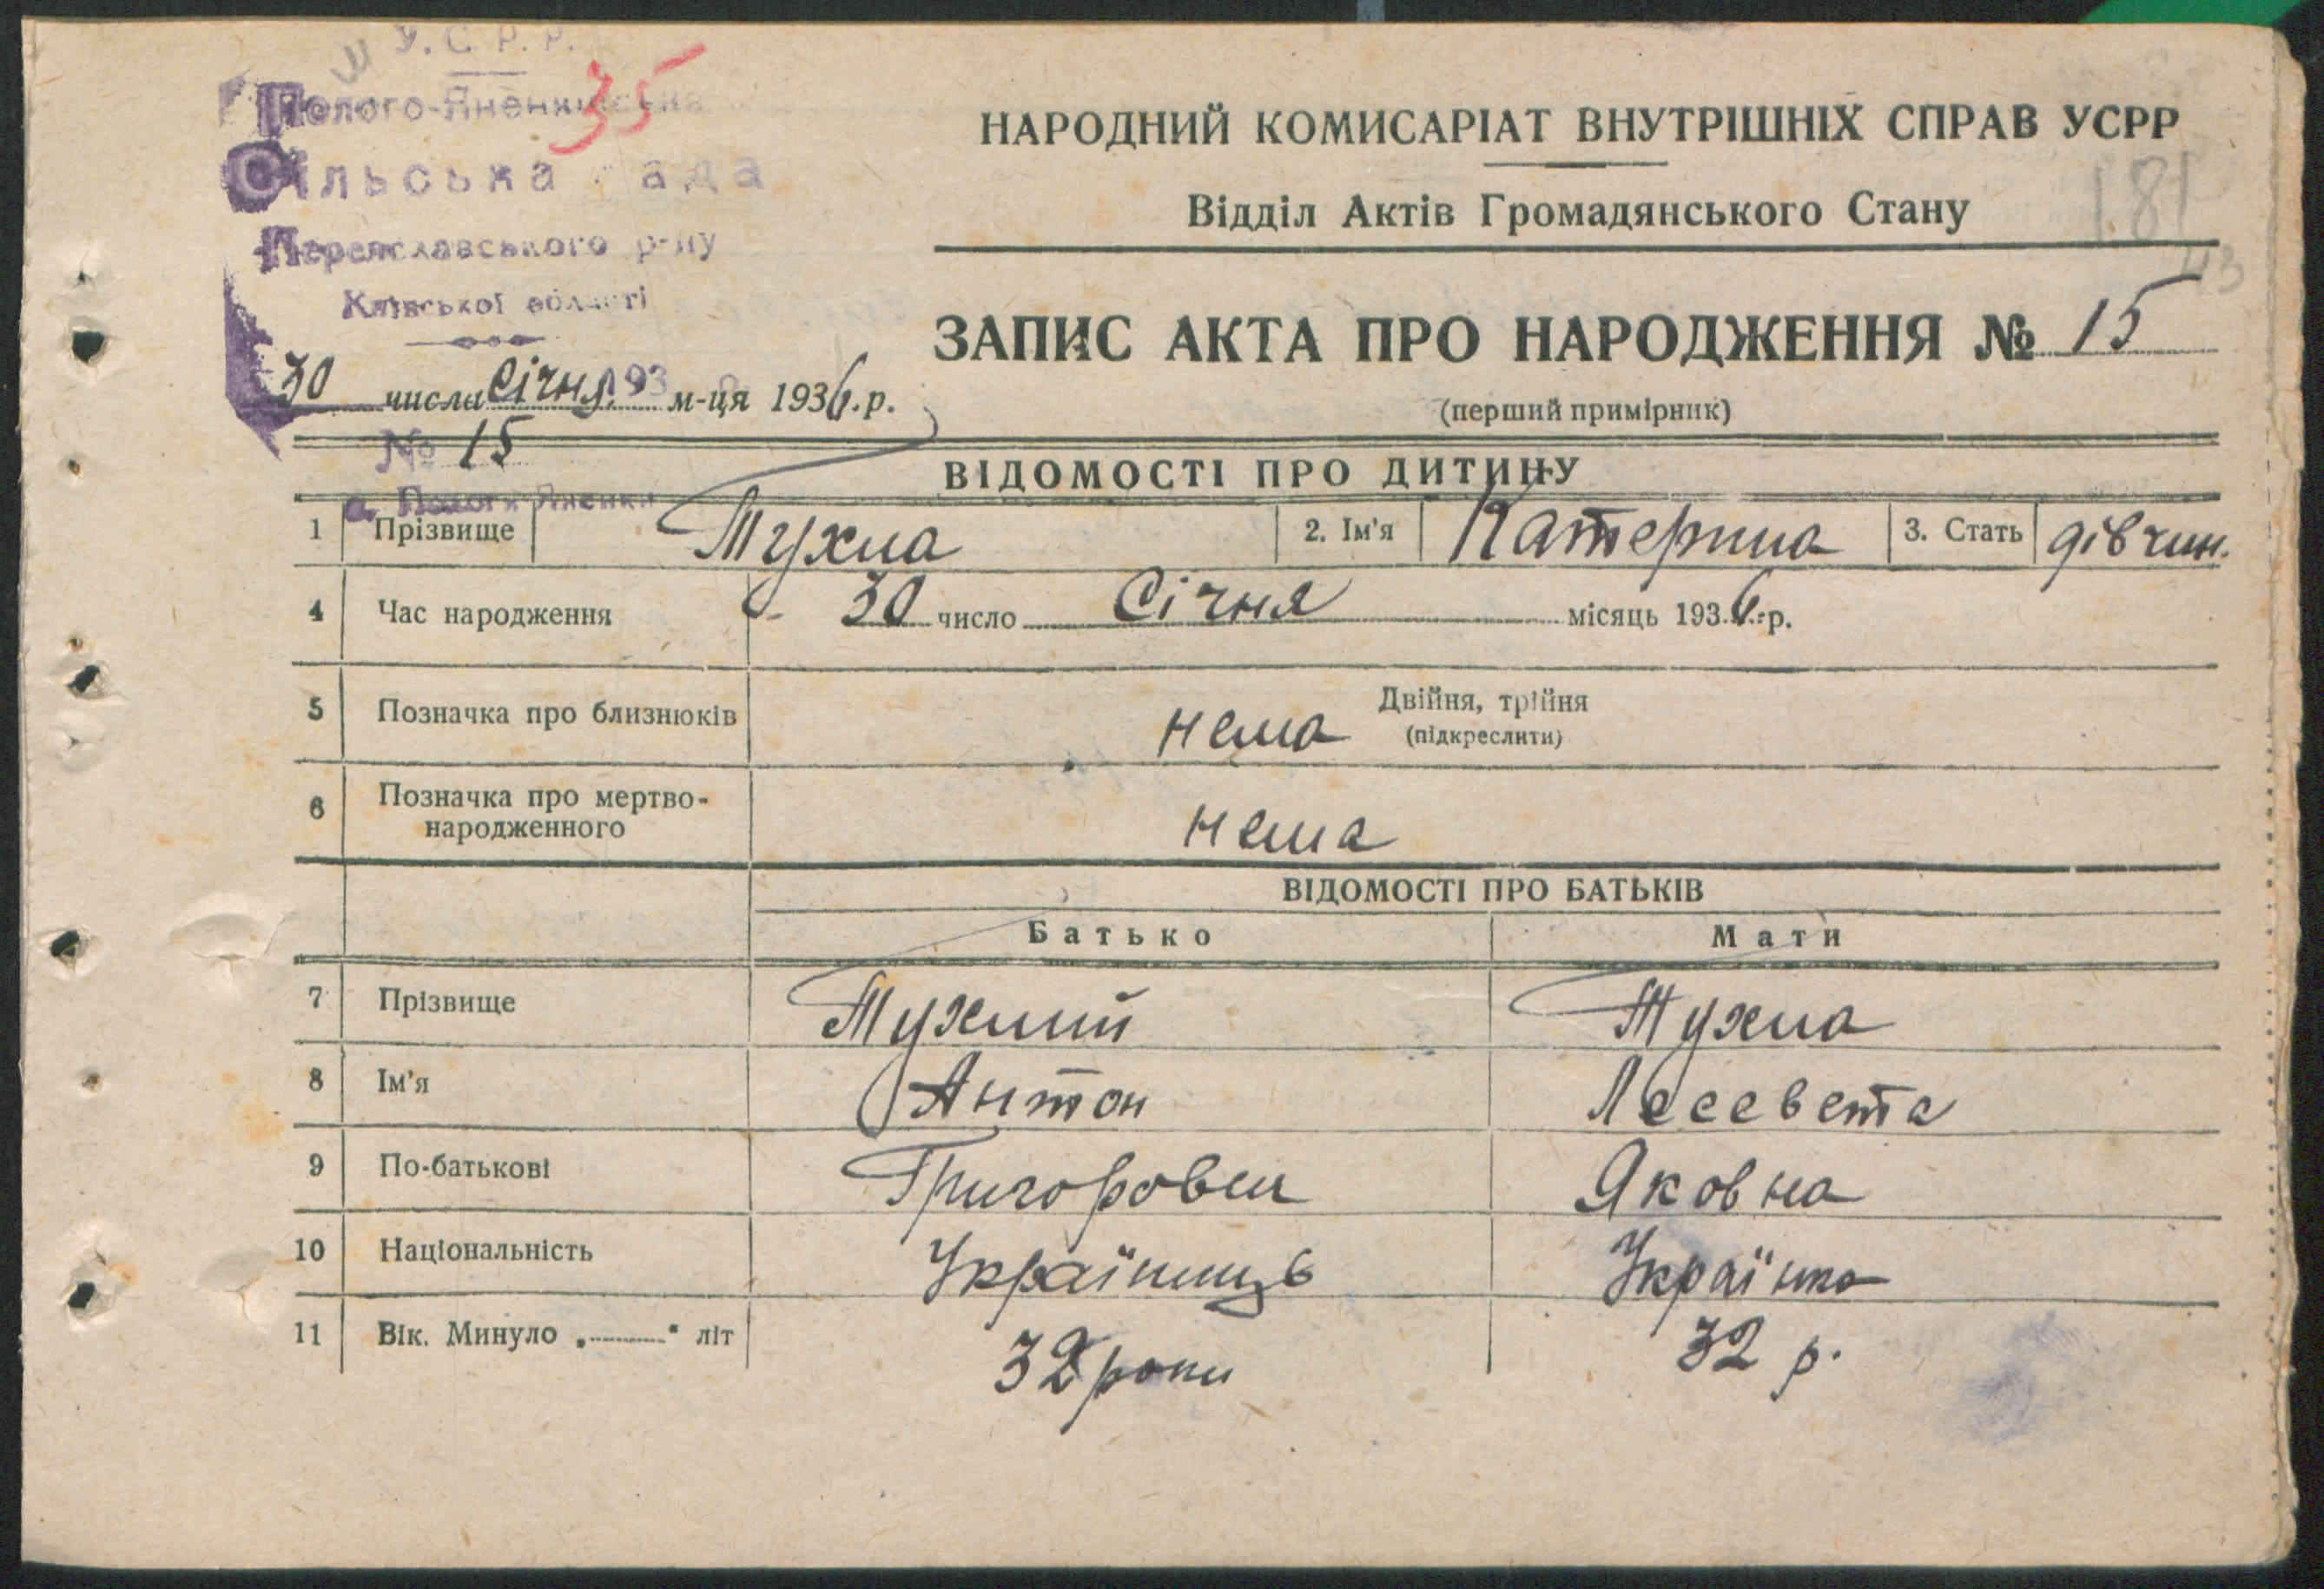 У.С.Р.Р.
35
Полого-Яненківська
Сільська рада
Переяславського р-ну
Київської області
30 числа Січня 193 м-ця 1936 р.
№ 15
с. Пологи Яненки
НАРОДНИЙ КОМИСАРІАТ ВНУТРІШНІХ СПРАВ УСРР
Відділ Актів Громадянського Стану
181
ЗАПИС АКТА ПРО НАРОДЖЕННЯ № 15
(перший примірник)
ВІДОМОСТІ ПРО ДИТИНУ
1 Прізвище Тухла 2. Ім'я Катерина 3. Стать дівчин.
4 Час народження 30 число Січня місяць 1936 р.
5 Позначка про близнюків нема Двійня, трійня
(підкреслити)
6 Позначка про мертво-
народженного нема
ВІДОМОСТІ ПРО БАТЬКІВ
Батько Мати
7 Прізвище Тухлий Тухла
8 Ім'я Антон Лесевета
9 По-батькові Григорович Яковна
10 Національність Українець Українка
11 Вік. Минуло „ “ літ 32 роки 32 р.